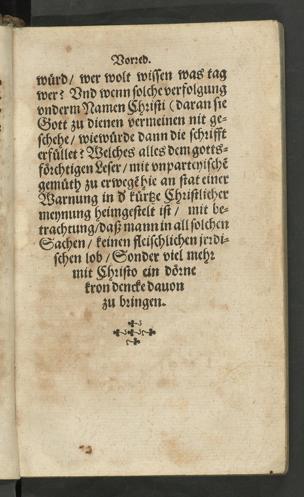 Vorred.
würd / wer wolt wissen was tag
wer? Vnd wenn solche verfolgung
vnderm Namen Christi (daran sie
Gott zu dienen vermeinen nit ge-
schehe / wie würde dann die schrifft
erfüllet? Welches alles dem gotts-
förchtigen Leser / mit vnparteyischẽ
gemüth zu erwegẽ hie an stat einer
Warnung in d' kürtze Christlicher
meynung heimgestelt ist / mit be-
trachtung / daß mann in all solchen
Sachen / keinen fleischlichen jrrdi-
schen lob / Sonder viel mehr
mit Christo ein dörne
kron dencke dauon
zu bringen.